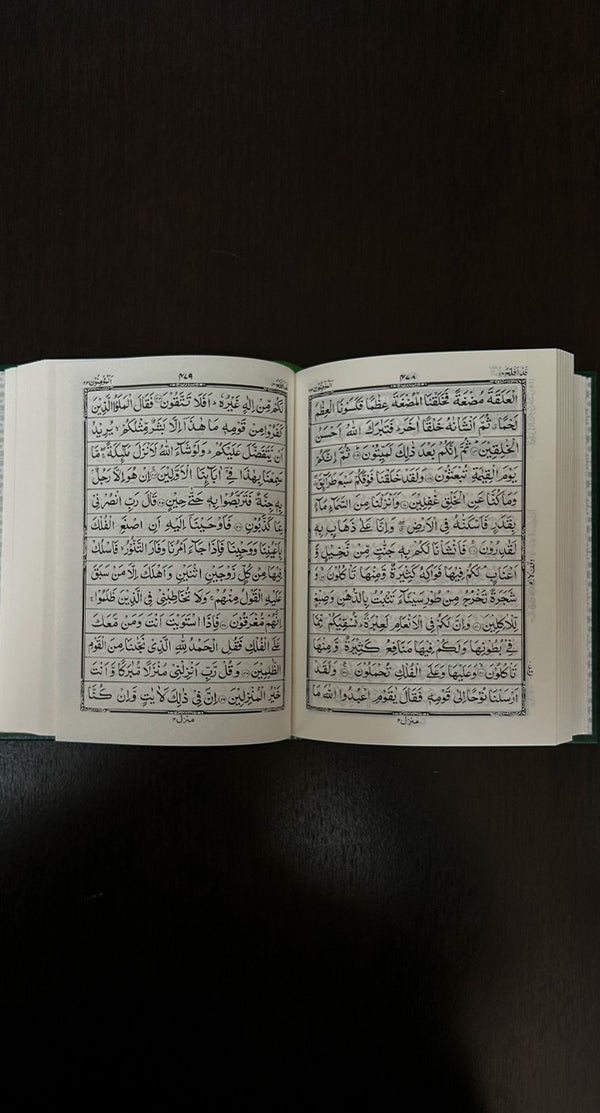 قد افلح ١٨
٤٧٨
المؤمنون ٢٣
الْعَلَقَةَ مُضْغَةً فَخَلَقْنَا الْمُضْغَةَ عِظٰمًا فَكَسَوْنَا الْعِظٰمَ
لَحْمًا ثُمَّ اَنْشَاْنٰهُ خَلْقًا اٰخَرَ فَتَبٰرَكَ اللّٰهُ اَحْسَنُ
الْخٰلِقِيْنَ ثُمَّ اِنَّكُمْ بَعْدَ ذٰلِكَ لَمَيِّتُوْنَ ثُمَّ اِنَّكُمْ
يَوْمَ الْقِيٰمَةِ تُبْعَثُوْنَ وَلَقَدْ خَلَقْنَا فَوْقَكُمْ سَبْعَ طَرَآئِقَ
وَمَا كُنَّا عَنِ الْخَلْقِ غٰفِلِيْنَ وَاَنْزَلْنَا مِنَ السَّمَآءِ مَآءً
بِقَدَرٍ فَاَسْكَنّٰهُ فِي الْاَرْضِ وَاِنَّا عَلٰى ذَهَابٍۭ بِهٖ
لَقٰدِرُوْنَ فَاَنْشَاْنَا لَكُمْ بِهٖ جَنّٰتٍ مِّنْ نَّخِيْلٍ وَّ
اَعْنَابٍ لَكُمْ فِيْهَا فَوَاكِهُ كَثِيْرَةٌ وَّمِنْهَا تَاْكُلُوْنَ وَ
شَجَرَةً تَخْرُجُ مِنْ طُوْرِ سَيْنَآءَ تَنْۢبُتُ بِالدُّهْنِ وَصِبْغٍ
لِّلْاٰكِلِيْنَ وَاِنَّ لَكُمْ فِي الْاَنْعَامِ لَعِبْرَةً نُسْقِيْكُمْ مِّمَّا
فِيْ بُطُوْنِهَا وَلَكُمْ فِيْهَا مَنَافِعُ كَثِيْرَةٌ وَّمِنْهَا
تَاْكُلُوْنَ وَعَلَيْهَا وَعَلَى الْفُلْكِ تُحْمَلُوْنَ وَلَقَدْ
اَرْسَلْنَا نُوْحًا اِلٰى قَوْمِهٖ فَقَالَ يٰقَوْمِ اعْبُدُوا اللّٰهَ مَا
منزل ٤
٤٧٩
المؤمنون ٢٣
لَكُمْ مِّنْ اِلٰهٍ غَيْرُهٗ اَفَلَا تَتَّقُوْنَ فَقَالَ الْمَلَؤُا الَّذِيْنَ
كَفَرُوْا مِنْ قَوْمِهٖ مَا هٰذَآ اِلَّا بَشَرٌ مِّثْلُكُمْ يُرِيْدُ
اَنْ يَّتَفَضَّلَ عَلَيْكُمْ وَلَوْ شَآءَ اللّٰهُ لَاَنْزَلَ مَلٰٓئِكَةً مَّا
سَمِعْنَا بِهٰذَا فِيْٓ اٰبَآئِنَا الْاَوَّلِيْنَ اِنْ هُوَ اِلَّا رَجُلٌۢ
بِهٖ جِنَّةٌ فَتَرَبَّصُوْا بِهٖ حَتّٰى حِيْنٍ قَالَ رَبِّ انْصُرْنِيْ
بِمَا كَذَّبُوْنِ فَاَوْحَيْنَآ اِلَيْهِ اَنِ اصْنَعِ الْفُلْكَ
بِاَعْيُنِنَا وَوَحْيِنَا فَاِذَا جَآءَ اَمْرُنَا وَفَارَ التَّنُّوْرُ فَاسْلُكْ
فِيْهَا مِنْ كُلٍّ زَوْجَيْنِ اثْنَيْنِ وَاَهْلَكَ اِلَّا مَنْ سَبَقَ
عَلَيْهِ الْقَوْلُ مِنْهُمْ وَلَا تُخَاطِبْنِيْ فِي الَّذِيْنَ ظَلَمُوْا
اِنَّهُمْ مُّغْرَقُوْنَ فَاِذَا اسْتَوَيْتَ اَنْتَ وَمَنْ مَّعَكَ
عَلَى الْفُلْكِ فَقُلِ الْحَمْدُ لِلّٰهِ الَّذِيْ نَجّٰىنَا مِنَ الْقَوْمِ
الظّٰلِمِيْنَ وَقُلْ رَّبِّ اَنْزِلْنِيْ مُنْزَلًا مُّبٰرَكًا وَّاَنْتَ
خَيْرُ الْمُنْزِلِيْنَ اِنَّ فِيْ ذٰلِكَ لَاٰيٰتٍ وَّاِنْ كُنَّا
منزل ٤